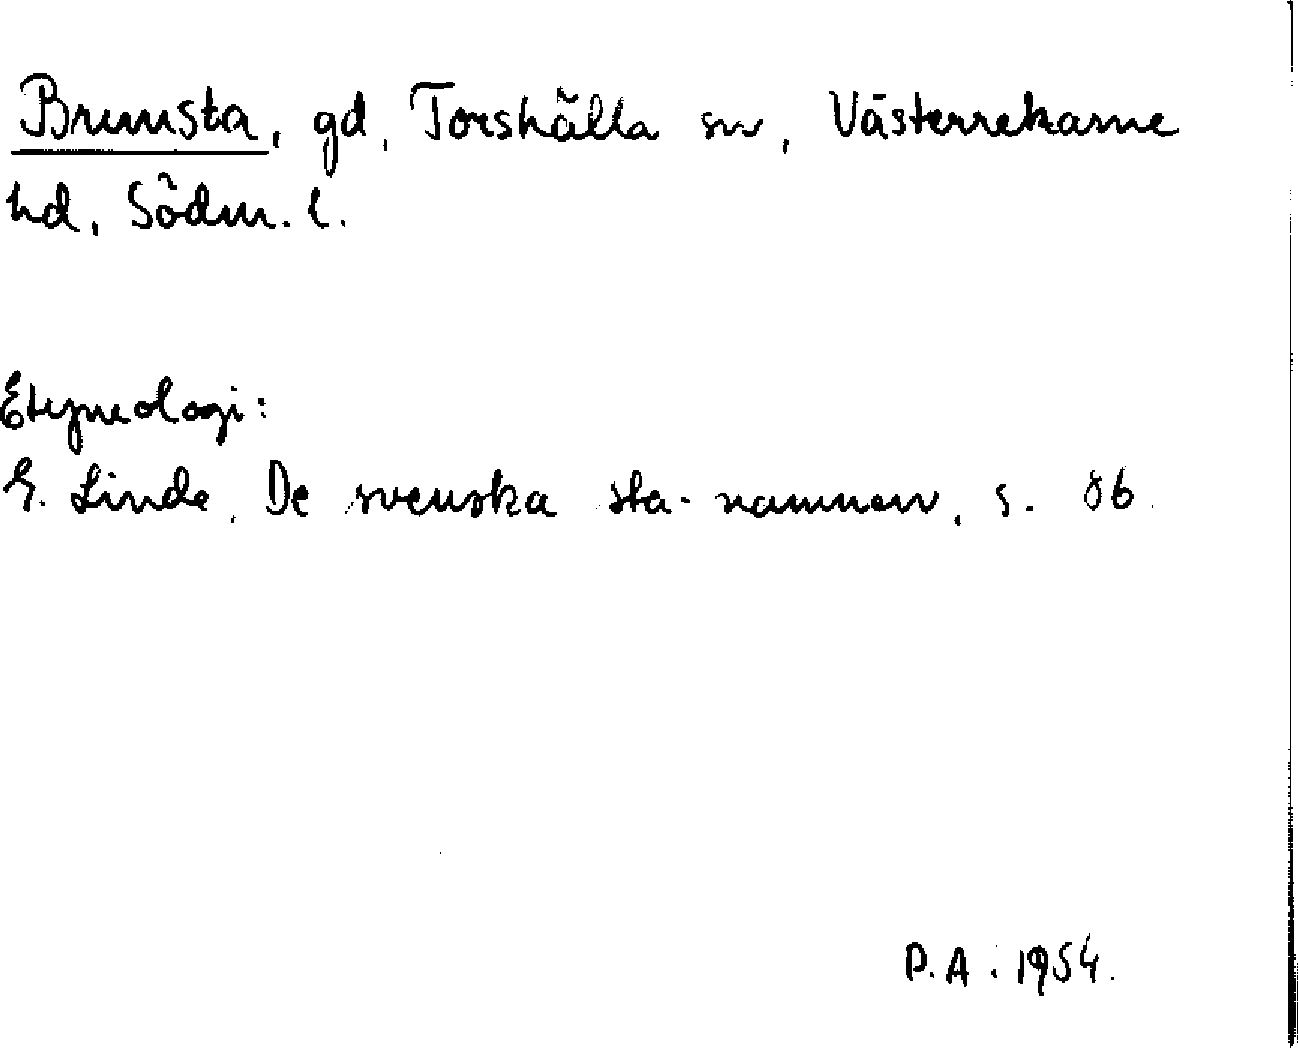 Brumsta, gd, Torshälla sn, Västerrekarne
hd, Södm. l.
Etymologi:
G. Linde, De svenska sta-namnen, s. 86.
P.A. 1954.